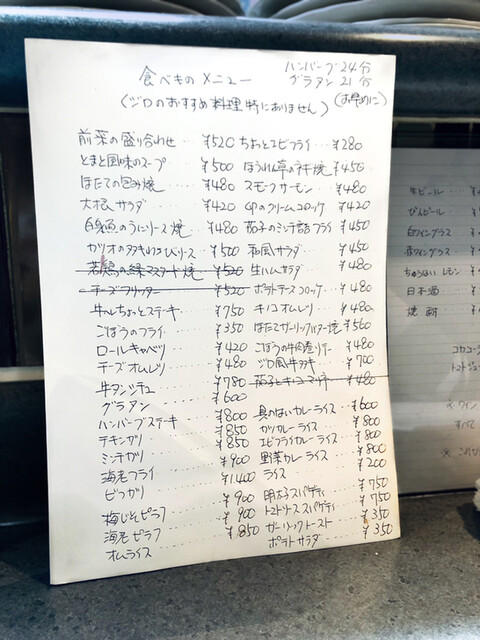 食べもの メニュー
ハンバーグ 24分
グラタン 21分
(ジロのおすすめ料理 特にありません)
(お早めに)
前菜の盛り合わせ ¥520
とまと風味のスープ ¥500
ほたての包み焼 ¥480
大根サラダ ¥420
白身魚のうにソース焼 ¥480
カツオのタタキわさびソース ¥500
若鶏の緑マスタード焼 ¥520
チーズフリッター ¥520
牛ヒレちょっとステーキ ¥750
ごぼうのフライ ¥350
ロールキャベツ ¥420
チーズオムレツ ¥480
牛タンシチュー ¥780
グラタン ¥600
ハンバーグステーキ ¥800
チキンカツ ¥850
ミンチカツ ¥850
海老フライ ¥900
ビフカツ ¥1,400
梅じそピラフ ¥900
海老ピラフ ¥900
オムライス ¥850
ちょっとエビフライ ¥280
ほうれん草のチーズ焼 ¥450
スモークサーモン ¥480
カニのクリームコロッケ ¥420
茄子のミンチ詰フライ ¥450
和風サラダ ¥450
生ハムサラダ ¥480
ポテトチーズコロッケ ¥480
キノコオムレツ ¥480
ほたてガーリックバター焼 ¥560
ごぼうの牛肉巻ソテー ¥480
ジロ風牛タタキ ¥700
茄子とキノコ ¥480
具のないカレーライス ¥600
カツカレーライス ¥800
エビフライカレーライス ¥800
野菜カレーライス ¥800
ライス ¥200
明太子スパゲティ ¥750
トマトソーススパゲティ ¥750
ガーリックトースト ¥350
ポテトサラダ ¥350
生ビール
びんビール
白ワイングラス
赤ワイングラス
ちゅうはい レモン
日本酒
焼酎
コカコー
トマトジュー
※ ワイン
すべて